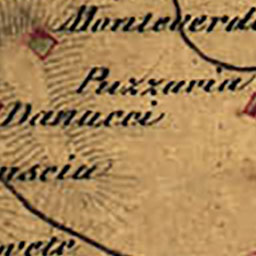 Monteverde
Puzzaria
Danucci
uscia
wete